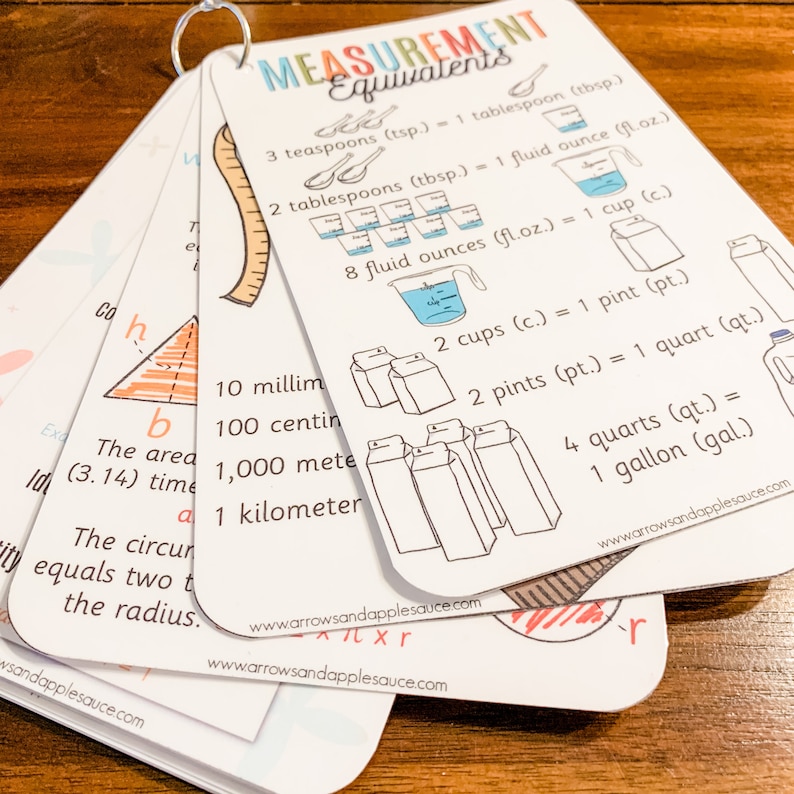 MEASUREMENT
Equivalents
3 teaspoons (tsp.) = 1 tablespoon (tbsp.)
2 tablespoons (tbsp.) = 1 fluid ounce (fl.oz.)
8 fluid ounces (fl.oz.) = 1 cup (c.)
2 cups (c.) = 1 pint (pt.)
2 pints (pt.) = 1 quart (qt.)
4 quarts (qt.) =
1 gallon (gal.)
www.arrowsandapplesauce.com
10 millim
100 centim
1,000 mete
1 kilometer
www.arrowsandapplesauce.com
h
b
The area
(3.14) time
The circum
equals two t
the radius.
x π x r
r
www.arrowsandapplesauce.com
Co
Exa
Ide
tity
owsandapplesauce.com